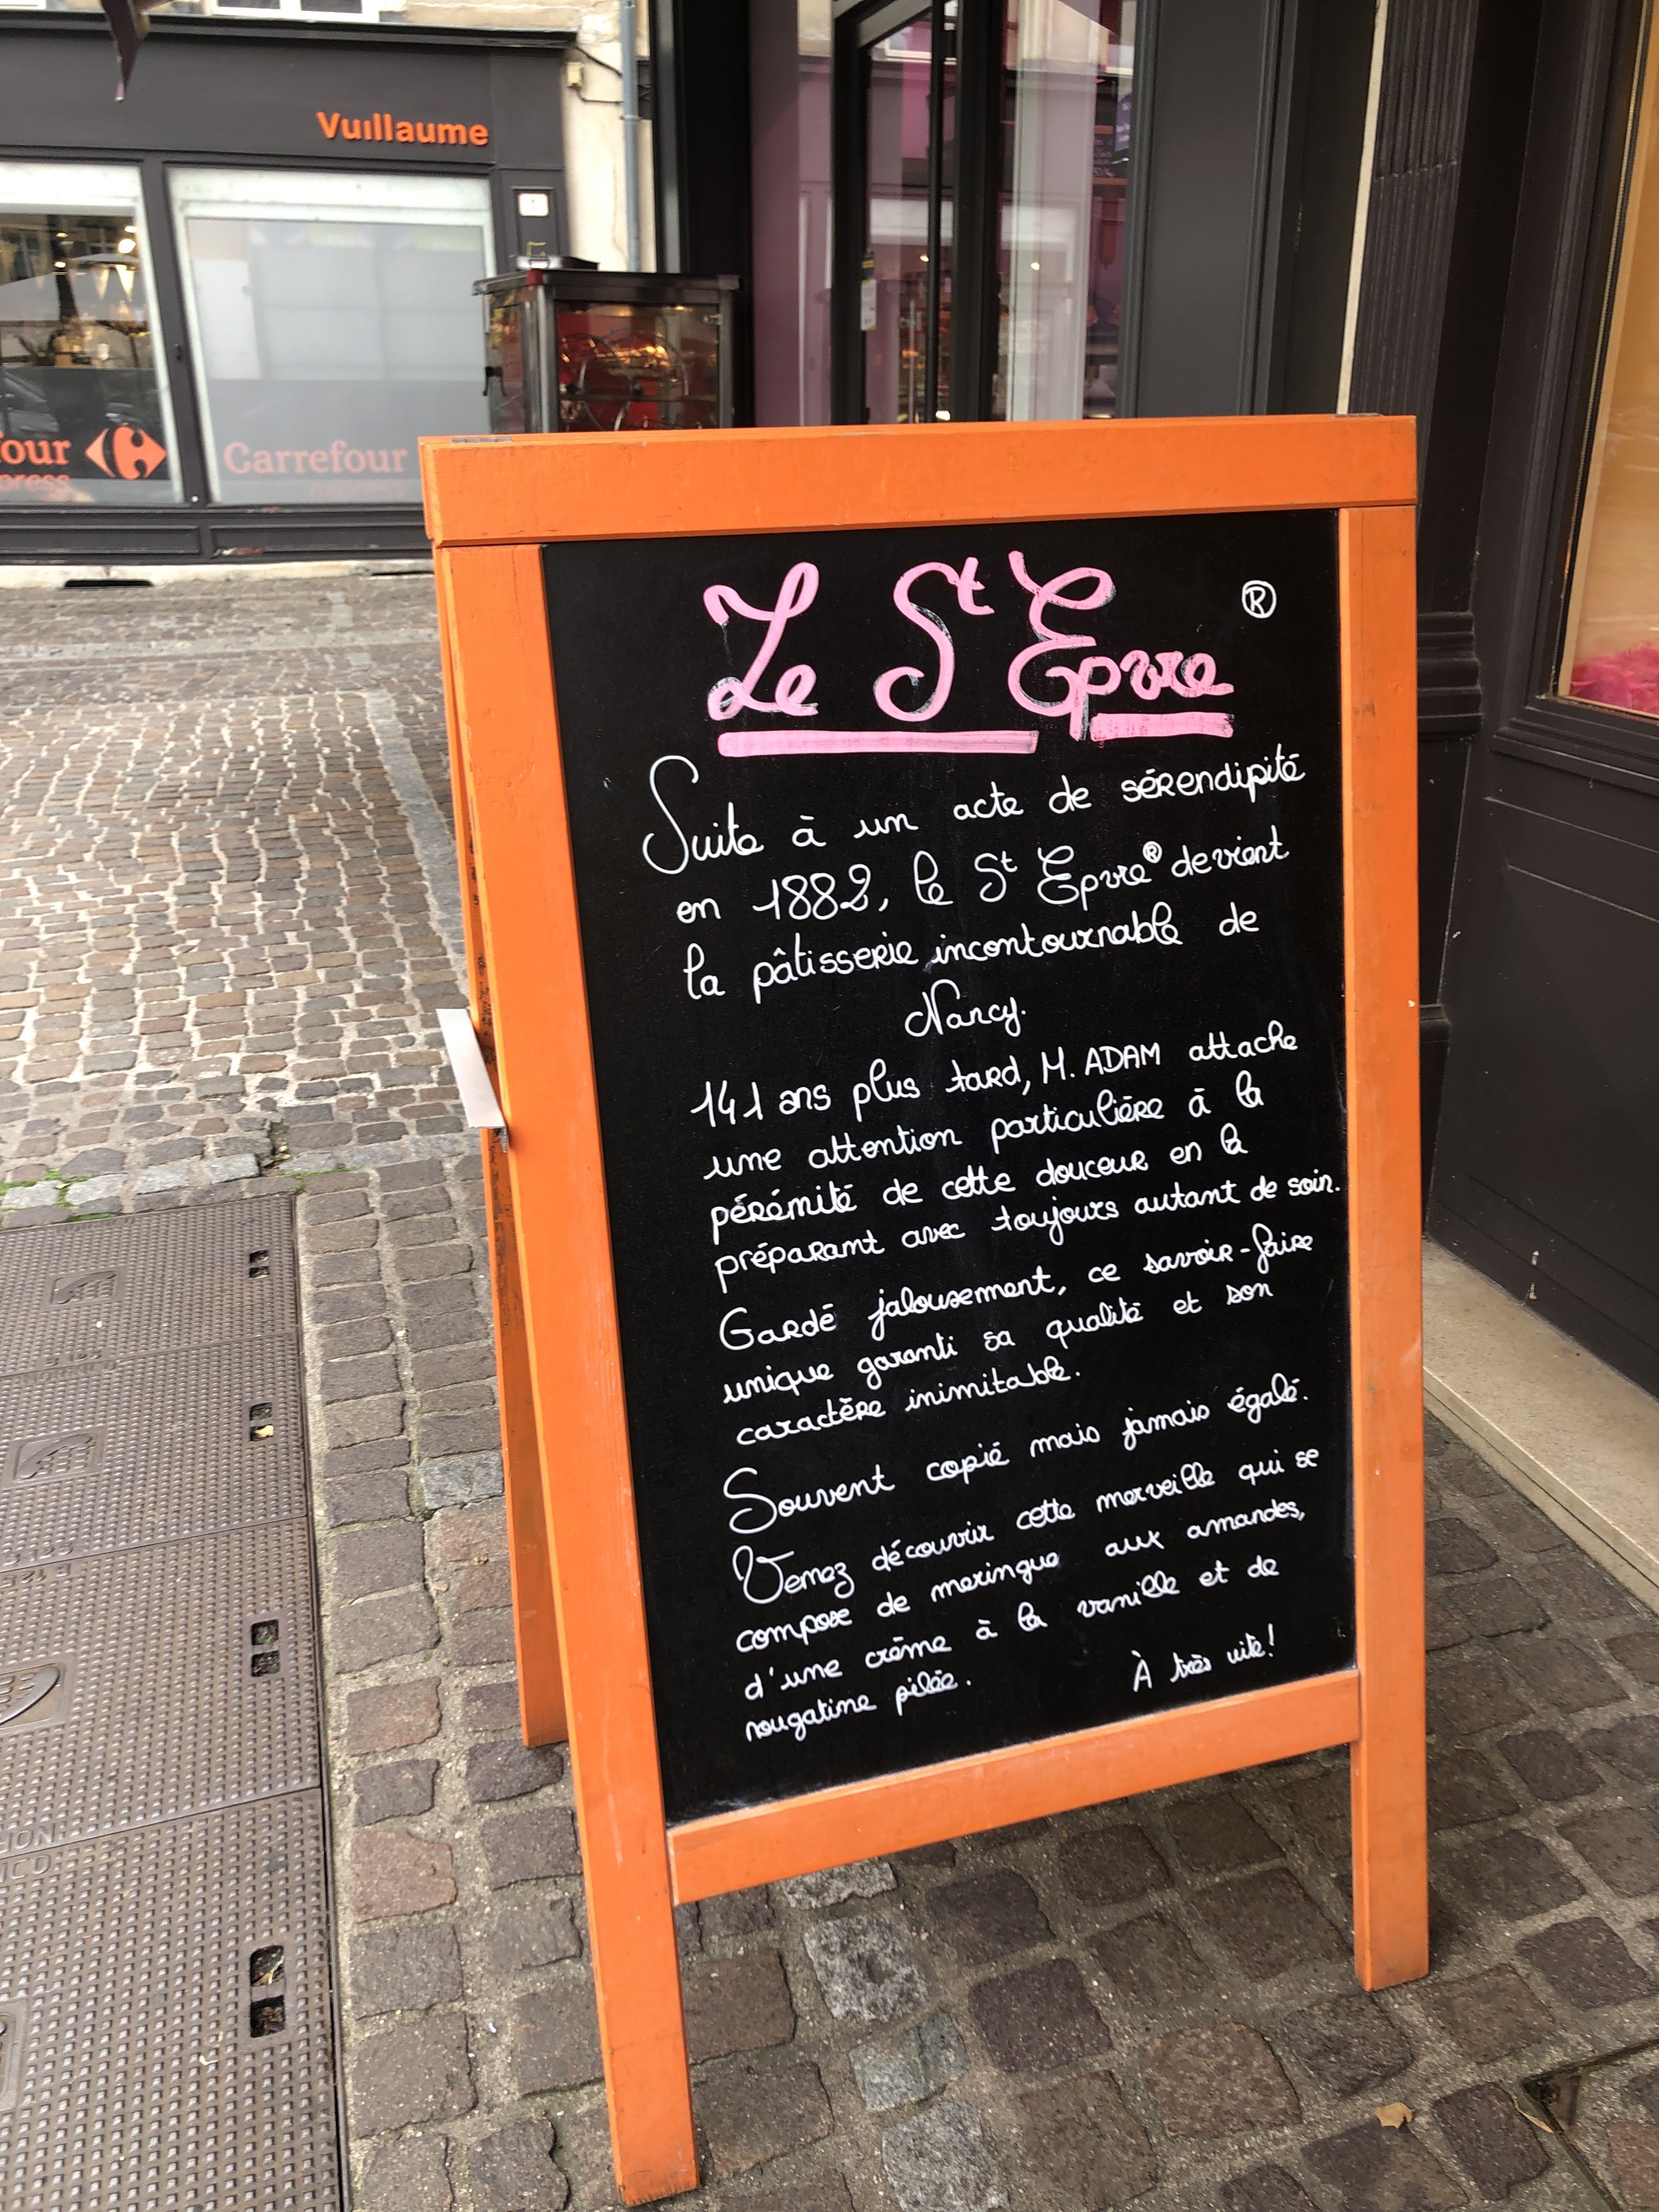 Vuillaume
four
press
Carrefour
Le St Epvre ®
Suite à un acte de sérendipité
en 1882, le St Epvre® devient
la pâtisserie incontournable de
Nancy.
141 ans plus tard, M. ADAM attache
une attention particulière à la
pérémité de cette douceur en la
préparant avec toujours autant de soin.
Gardé jalousement, ce savoir-faire
unique garanti sa qualité et son
caractère inimitable.
Souvent copié mais jamais égalé.
Venez découvrir cette merveille qui se
compose de meringue aux amandes,
d'une crème à la vanille et de
nougatine pilée.
À très vite!